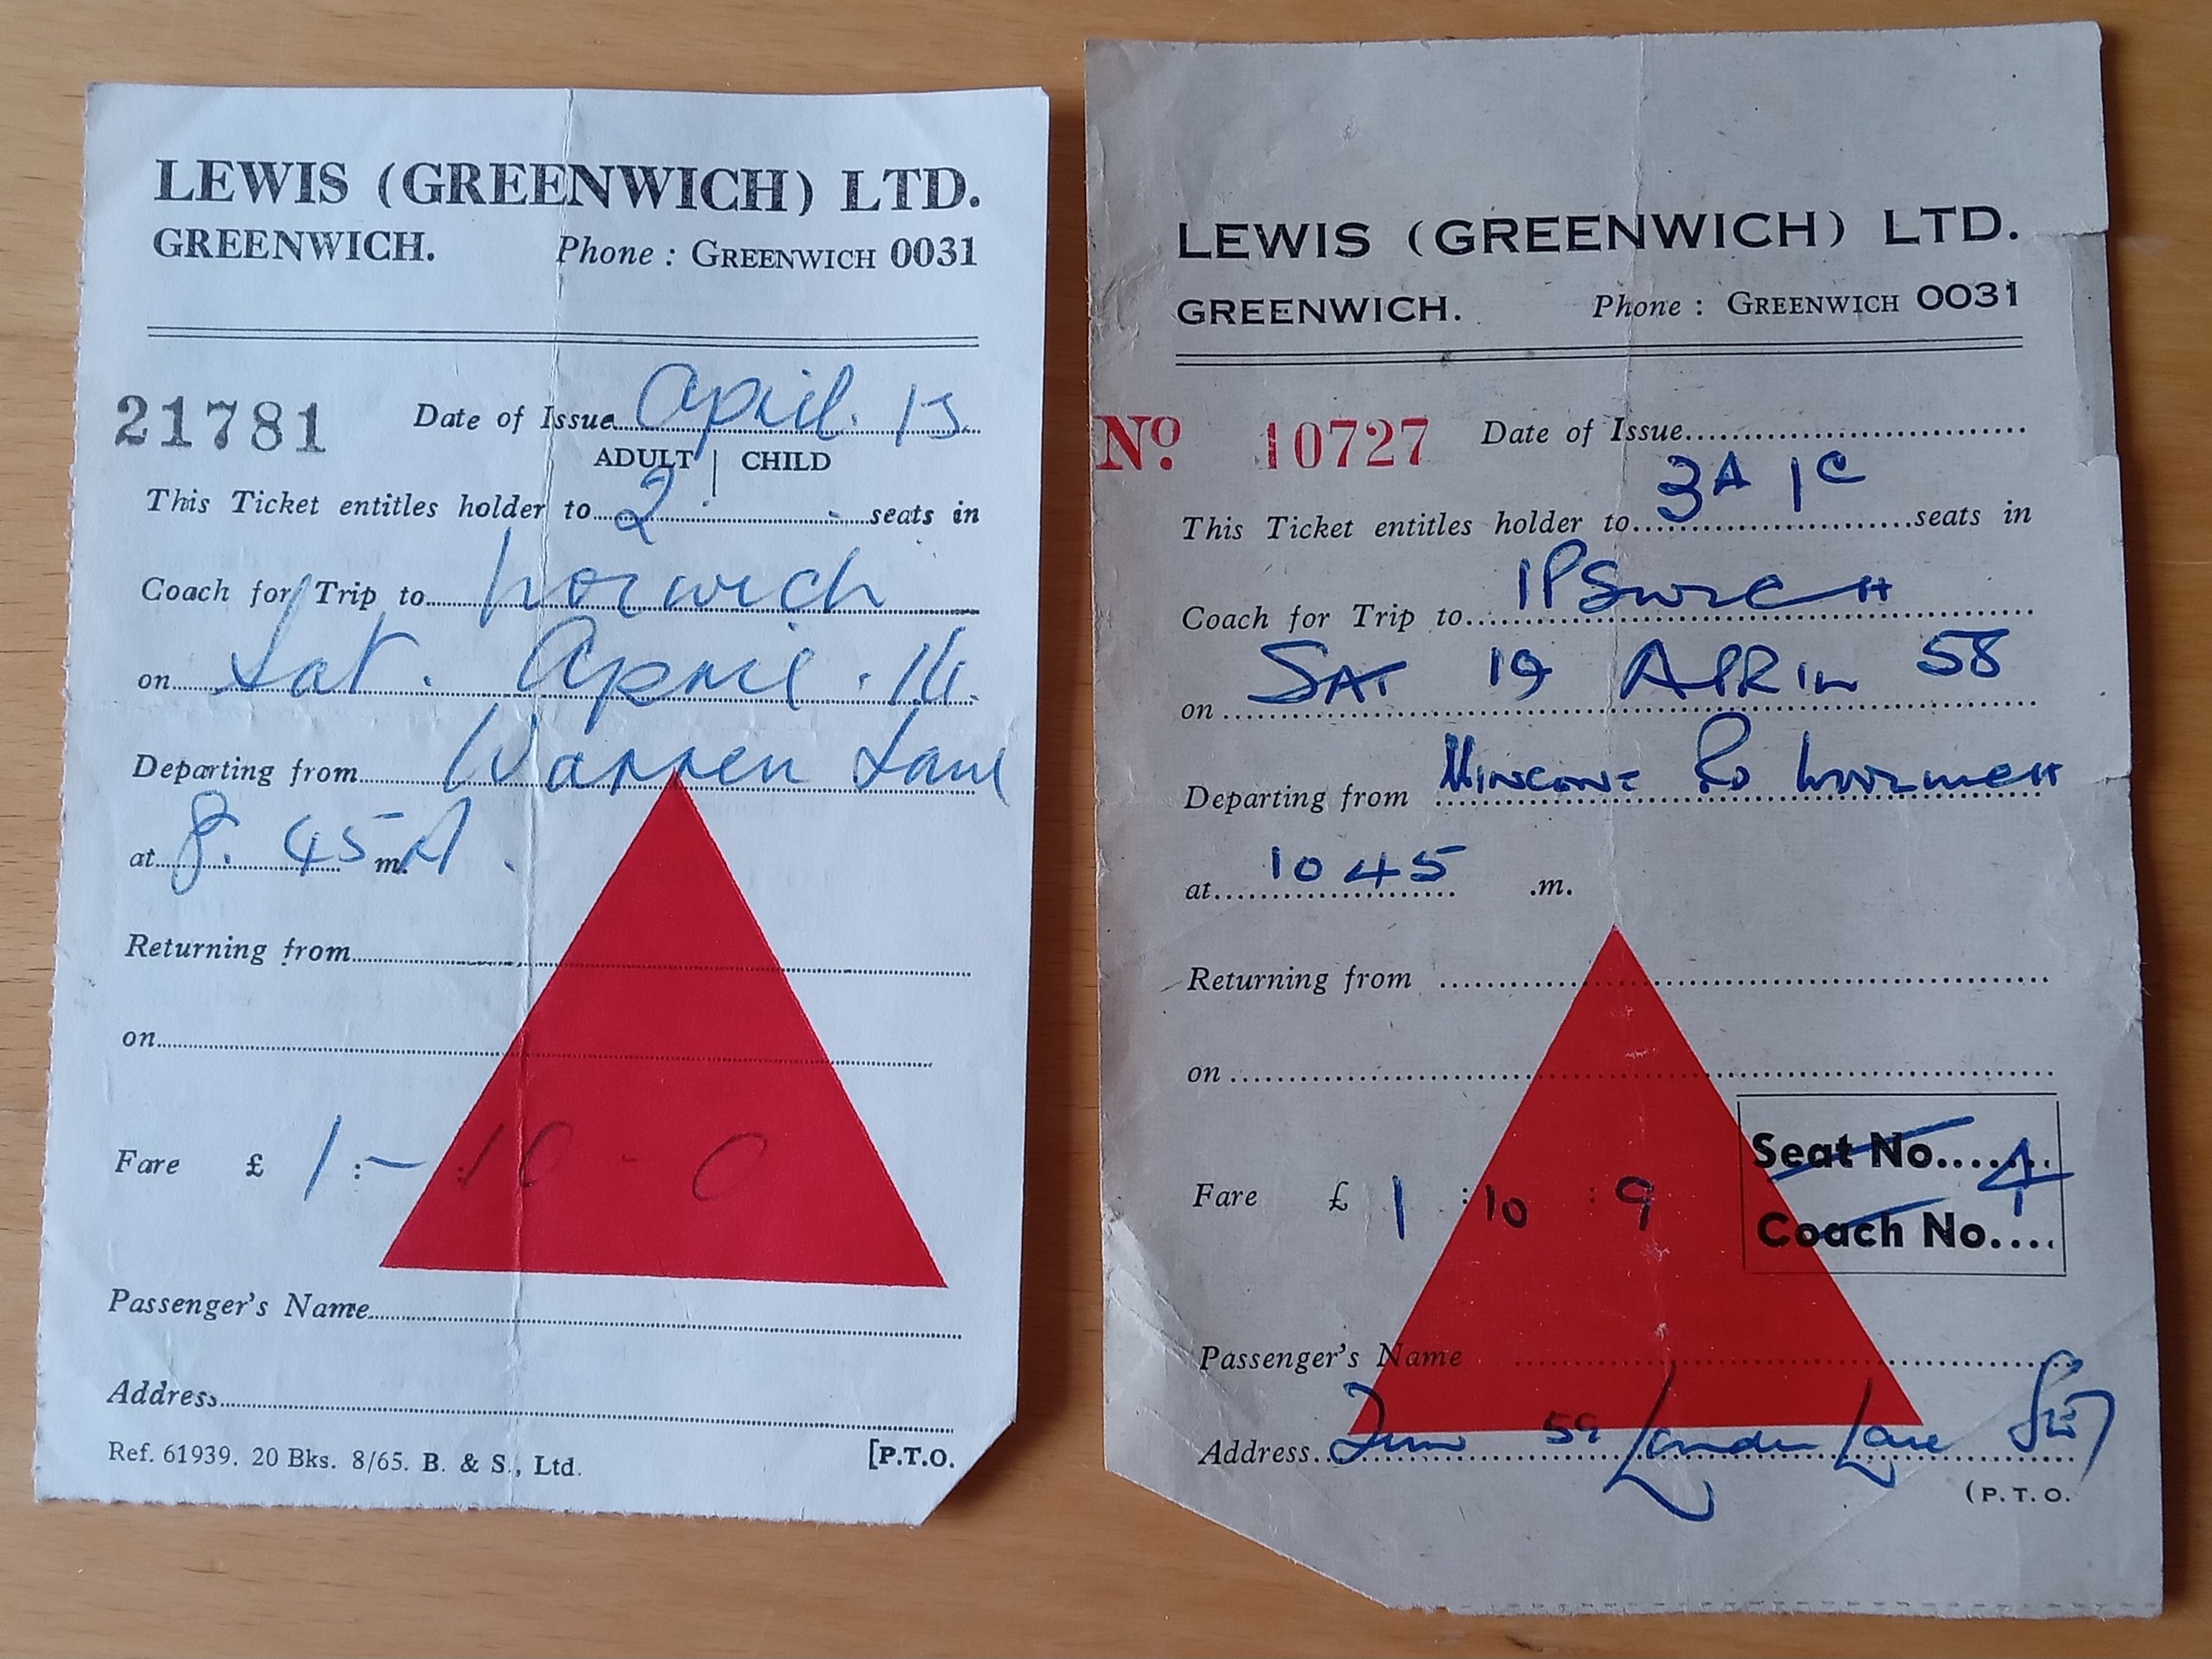 LEWIS (GREENWICH) LTD.
GREENWICH. Phone : GREENWICH 0031
21781 Date of Issue April. 15
ADULT | CHILD
This Ticket entitles holder to 2 - seats in
Coach for Trip to Norwich
on Sat. April . 16.
Departing from Warren Lane
at 8. 45 m. A.
Returning from
on
Fare £ 1 : - : 10 - 0
Passenger's Name
Address
Ref. 61939. 20 Bks. 8/65. B. & S., Ltd. [P.T.O.
LEWIS (GREENWICH) LTD.
GREENWICH. Phone : GREENWICH 0031
No. 10727 Date of Issue
This Ticket entitles holder to 3A 1C seats in
Coach for Trip to IPSWICH
on SAT 19 APRIL 58
Departing from Rd Woolwich
at 10 45 .m.
Returning from
on
Seat No.
Fare £ 1 : 10 : 9 4
Coach No.
Passenger's Name
Address 59 Lane SE7
(P.T.O.